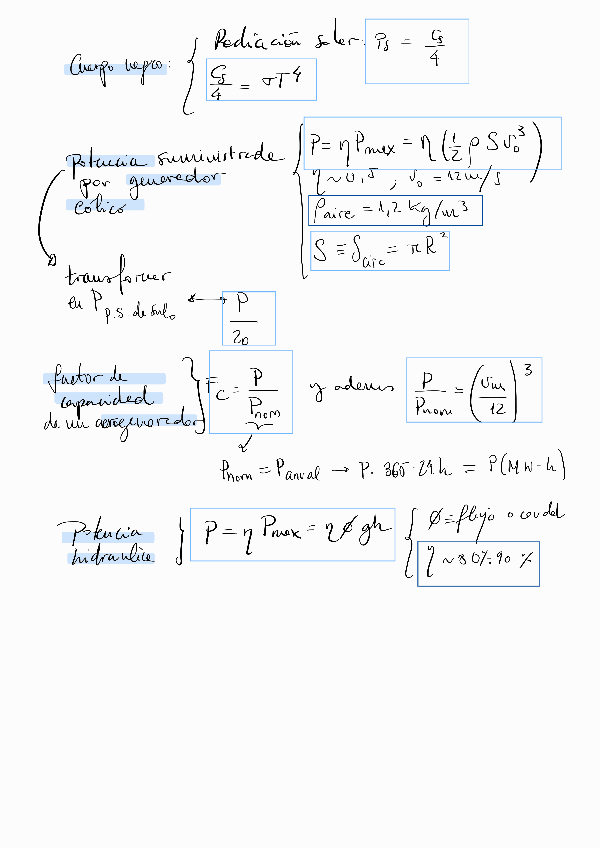 Cuerpo negro: { Radiación solar: Ps = Cs/4
Cs/4 = σT⁴
potencia suministrada por generador eólico { P = η Pmax = η (1/2 ρ S v₀³)
η ~ 0,5 , v₀ = 12 m/s
ρaire = 1,2 kg/m³
S ≡ Scirc = πR²
transformar
en P p.s de suelo ↔ P/20
factor de capacidad de un aerogenerador } Fc = P/Pnom y además P/Pnom = (vm/12)³
Pnom = Panual → P · 365 · 24 h = P(MW-h)
Potencia hidraulica } P = η Pmax = ηφgh { φ = flujo o caudal
η ~ 80% 90 %